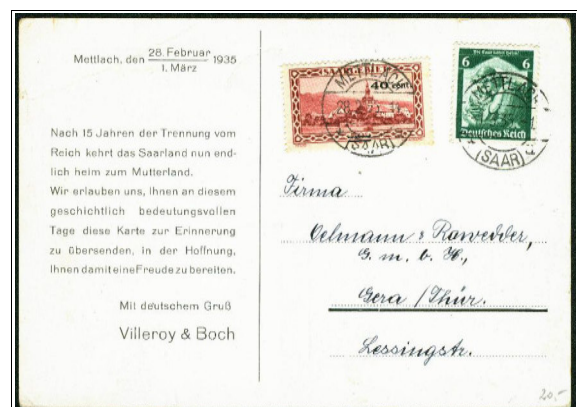 Mettlach, den 28. Februar 1935
1. März
Nach 15 Jahren der Trennung vom
Reich kehrt das Saarland nun end-
lich heim zum Mutterland.
Wir erlauben uns, Ihnen an diesem
geschichtlich bedeutungsvollen
Tage diese Karte zur Erinnerung
zu übersenden, in der Hoffnung,
Ihnen damit eine Freude zu bereiten.
Mit deutschem Gruß
Villeroy & Boch
SAARGEBIET
40 cent.
METTLACH
(SAAR)
6 6
Deutsches Reich
METTLACH
(SAAR)
Firma
Oelmann & Rowedder,
G. m. b. H.,
Gera / Thür.
Lessingstr.
20.-